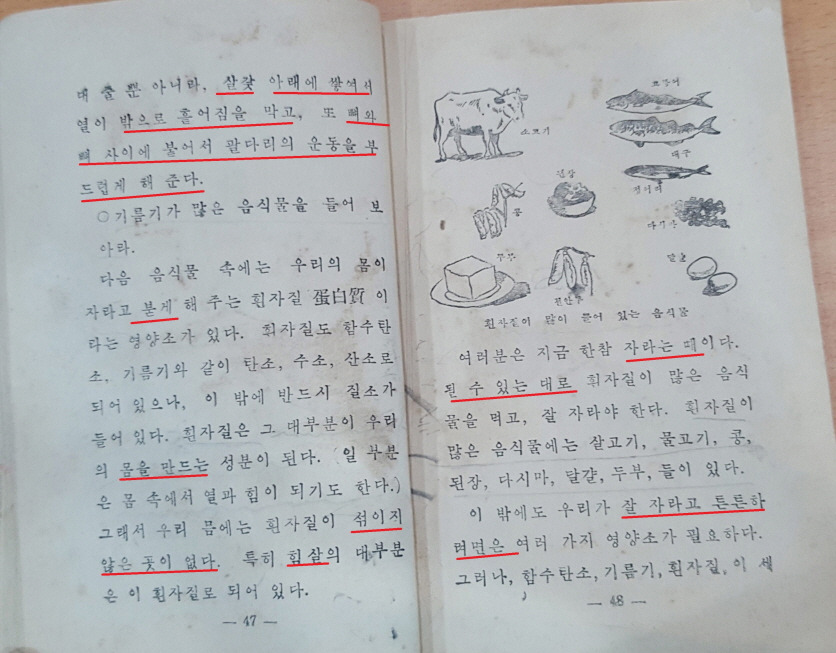 대 줄뿐 아니라, 살갗 아래에 쌓여서
열이 밖으로 흩어짐을 막고, 또 뼈와
뼈 사이에 붙어서 팔다리의 운동을 부
드럽게 해 준다.
○기름기가 많은 음식물을 들어 보
아라.
다음 음식물 속에는 우리의 몸이
자라고 붇게 해 주는 흰자질 蛋白質 이
라는 영양소가 있다. 흰자질도 함수탄
소, 기름기와 같이 탄소, 수소, 산소로
되어 있으나, 이 밖에 반드시 질소가
들어 있다. 흰자질은 그 대부분이 우리
의 몸을 만드는 성분이 된다. (일 부분
은 몸 속에서 열과 힘이 되기도 한다.)
그래서 우리 몸에는 흰자질이 섞이지
않은 곳이 없다. 특히 힘살의 대부분
은 이 흰자질로 되어 있다.
— 47 —
소고기
대구
정어리
된장
콩
다시마
두부
달걀
흰자질이 많이 들어 있는 음식물
여러분은 지금 한참 자라는 때이다.
될 수 있는 대로 흰자질이 많은 음식
물을 먹고, 잘 자라야 한다. 흰자질이
많은 음식물에는 살고기, 물고기, 콩,
된장, 다시마, 달걀, 두부, 들이 있다.
이 밖에도 우리가 잘 자라고 튼튼하
려면은 여러 가지 영양소가 필요하다.
그러나, 함수탄소, 기름기, 흰자질, 이 세
— 48 —